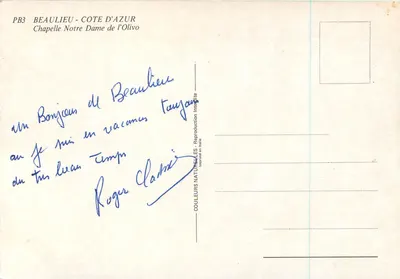 PB3 BEAULIEU - COTE D'AZUR
Chapelle Notre Dame de l'Olivo
un Bonjour de Beaulieu
ou je suis en vacances toujours
du très beau Temps
Roger
COULEURS NATURELLES - Reproduction interdite